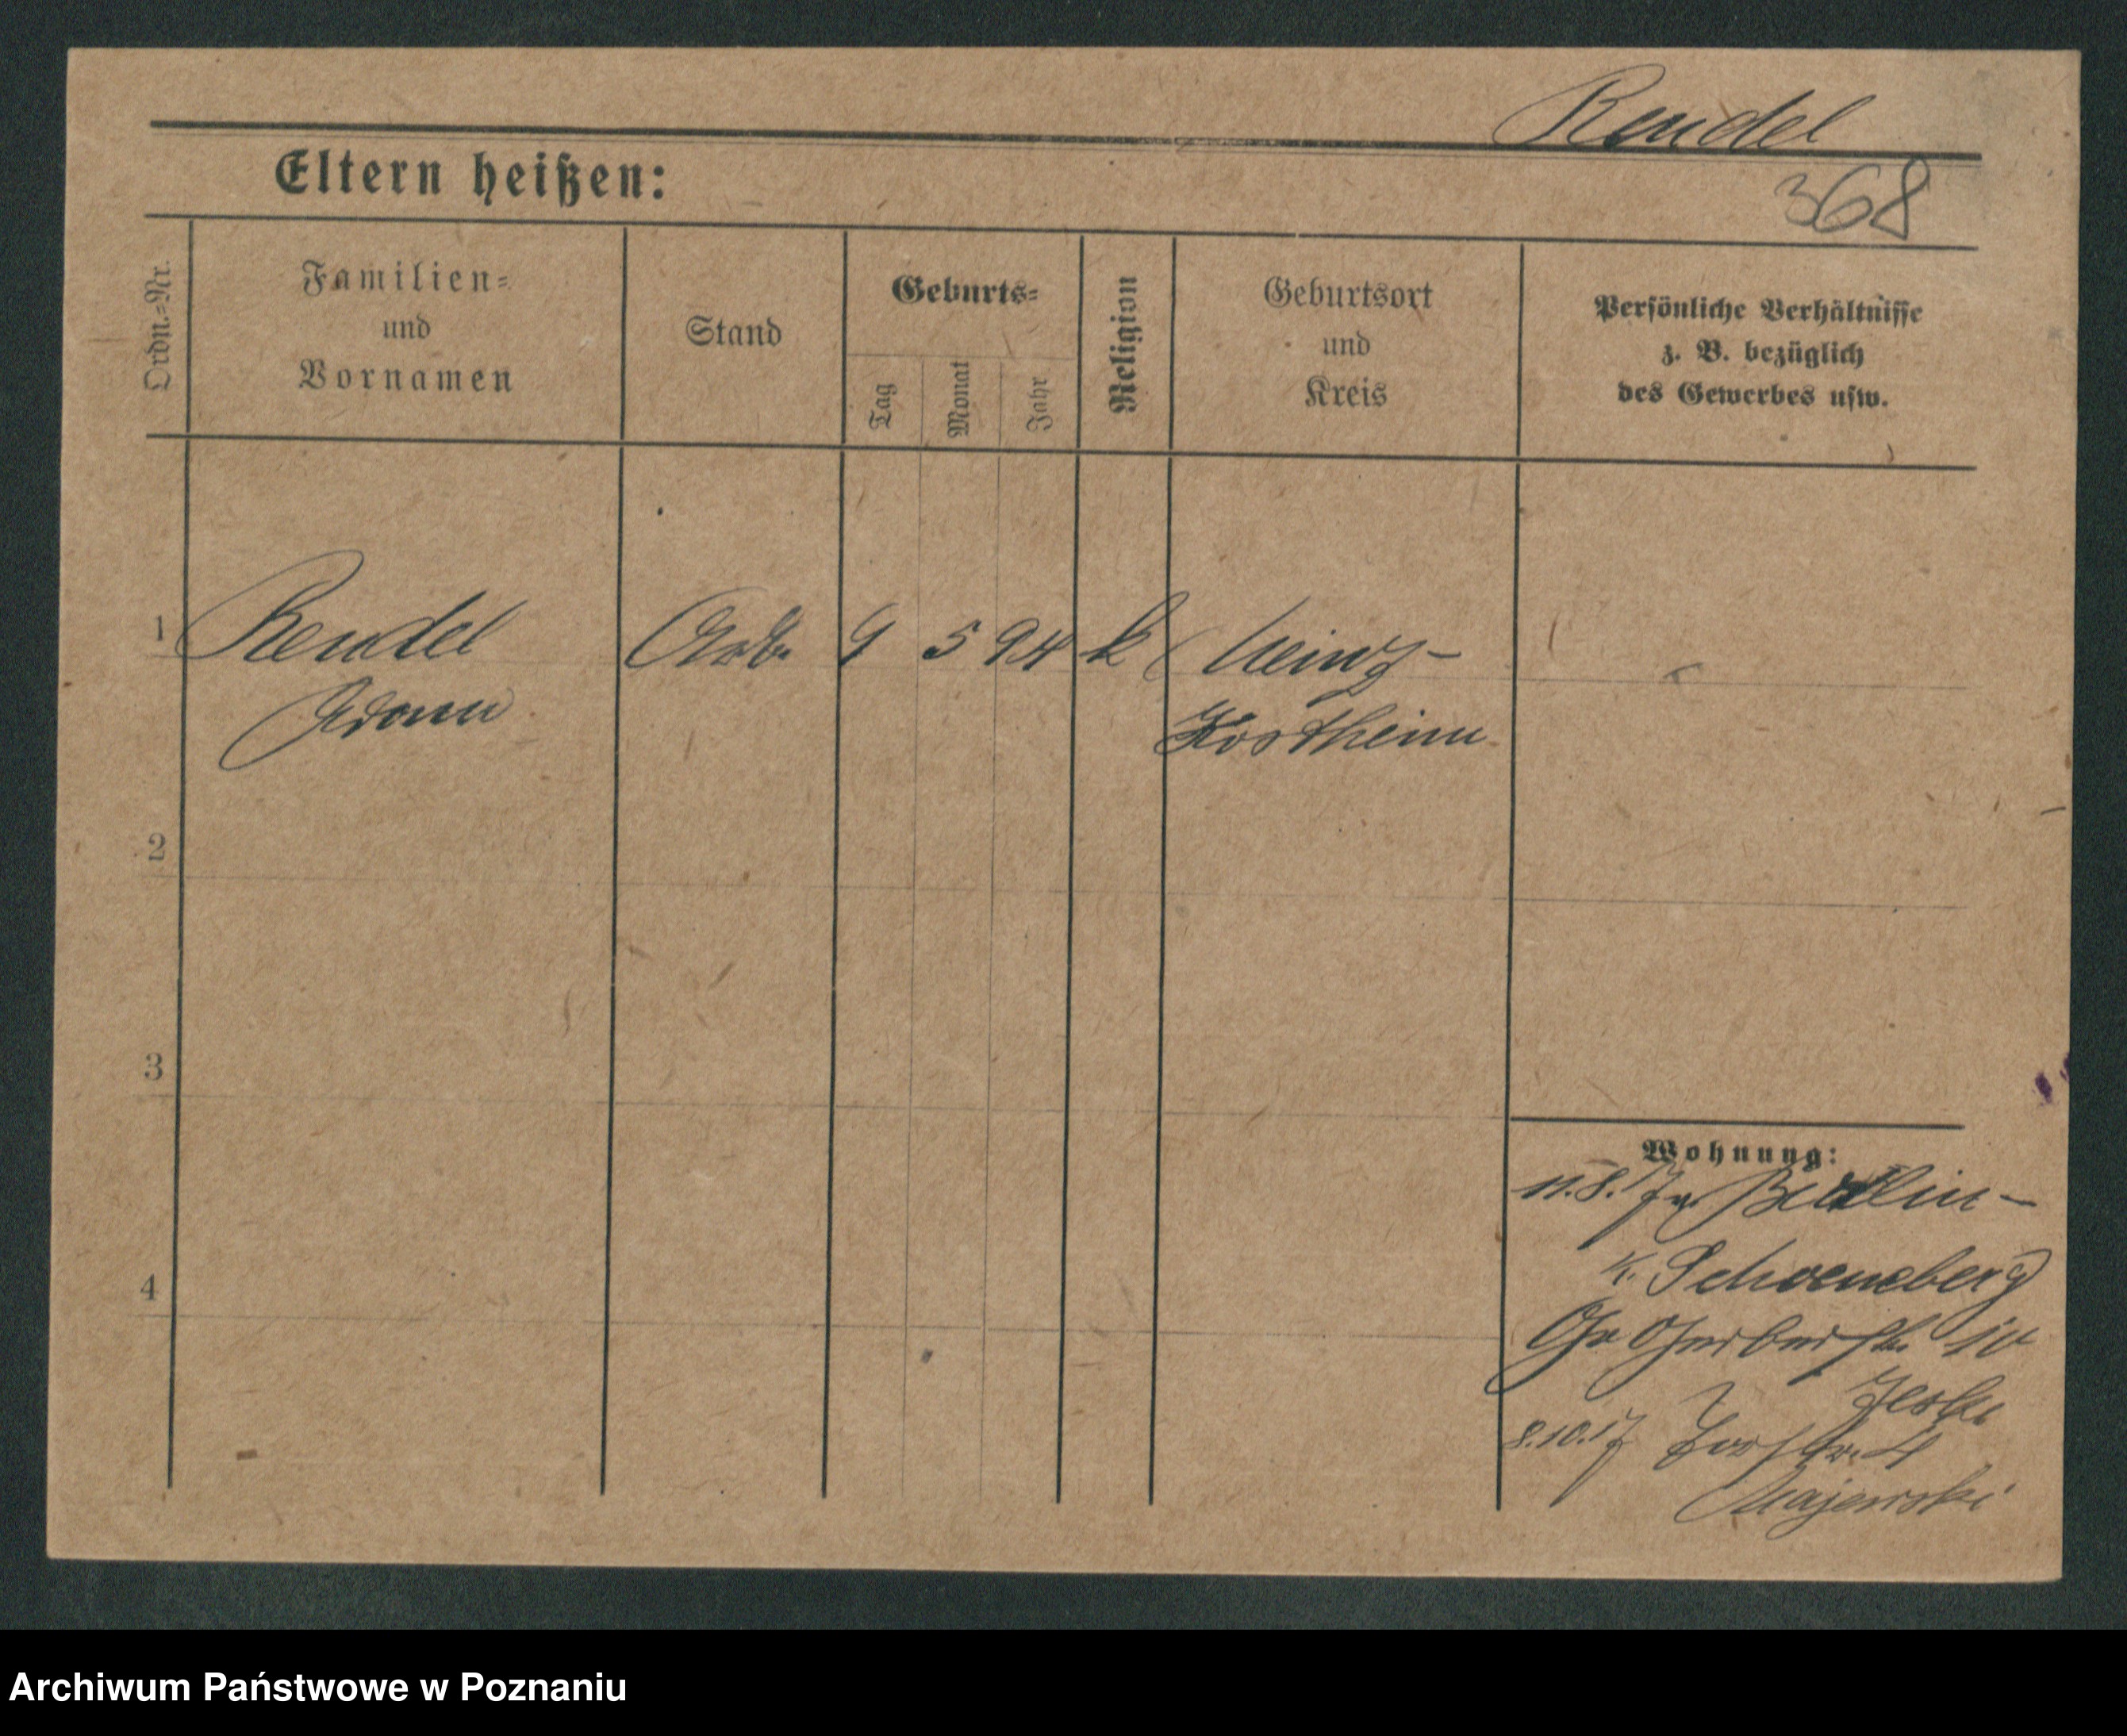 Rendel
Eltern heißen:
368
Ordn.-Nr.
Familien-
und
Vornamen
Stand
Geburts-
Tag
Monat
Jahr
Religion
Geburtsort
und
Kreis
Persönliche Verhältnisse
z. B. bezüglich
des Gewerbes usw.
1
Rendel
Arb.
9
5
94
k
Mainz-
Adam
Kostheim
2
3
4
Wohnung:
11.8.17 Berlin-
Schoeneberg
Gr Gerberstr. 10
8.10.17
4
Majewski
Archiwum Państwowe w Poznaniu